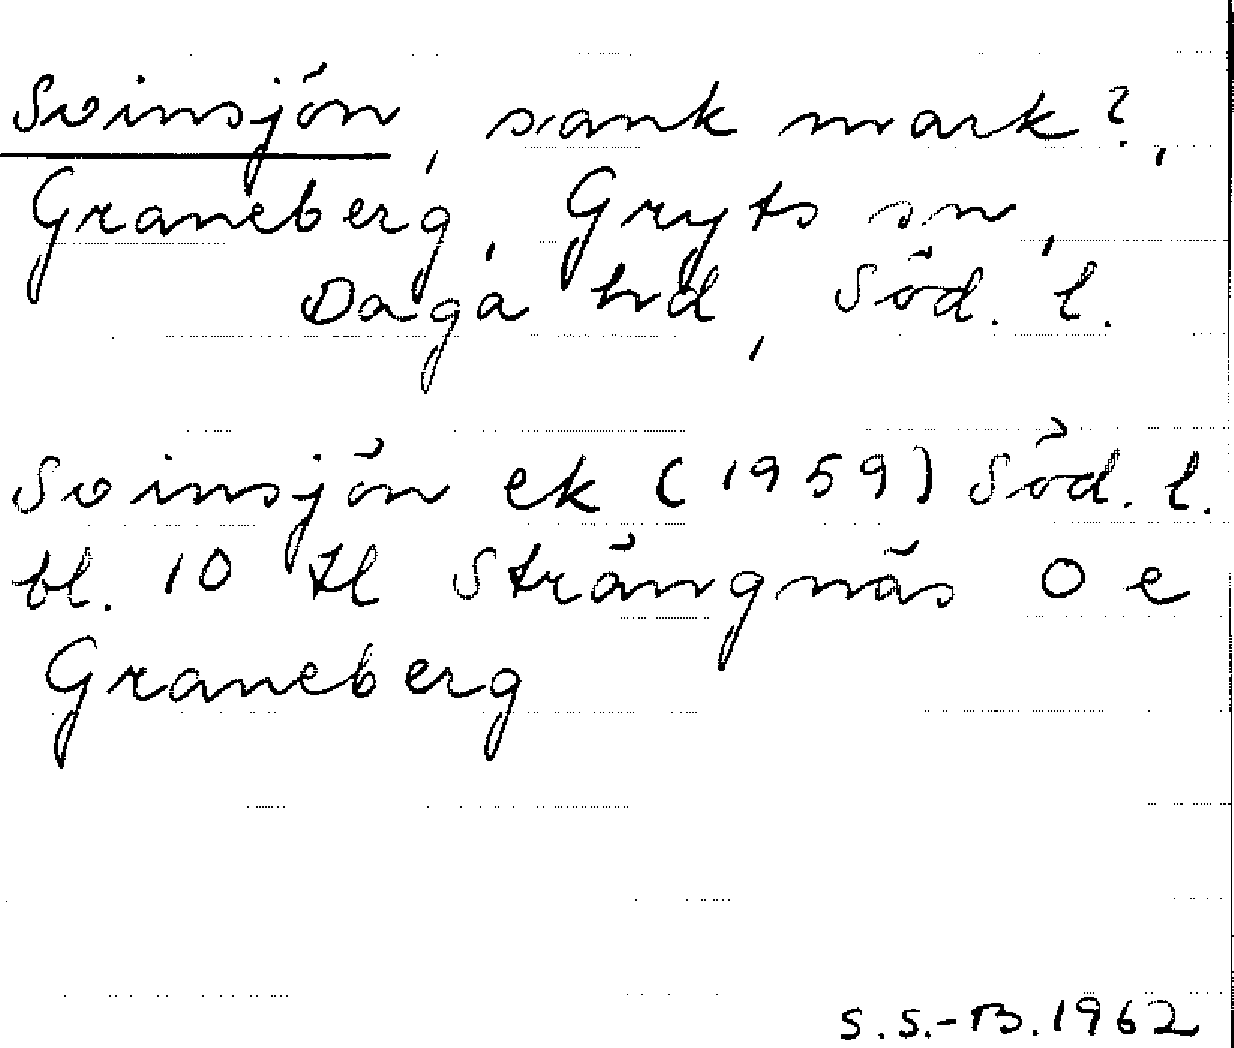 Svinsjön, sank mark?,
Graneberg, Gryts sn,
Daga hd, Söd. l.
Svinsjön ek (1959) Söd. l.
bl. 10 tl Strängnäs O e
Graneberg
S.S.-B. 1962